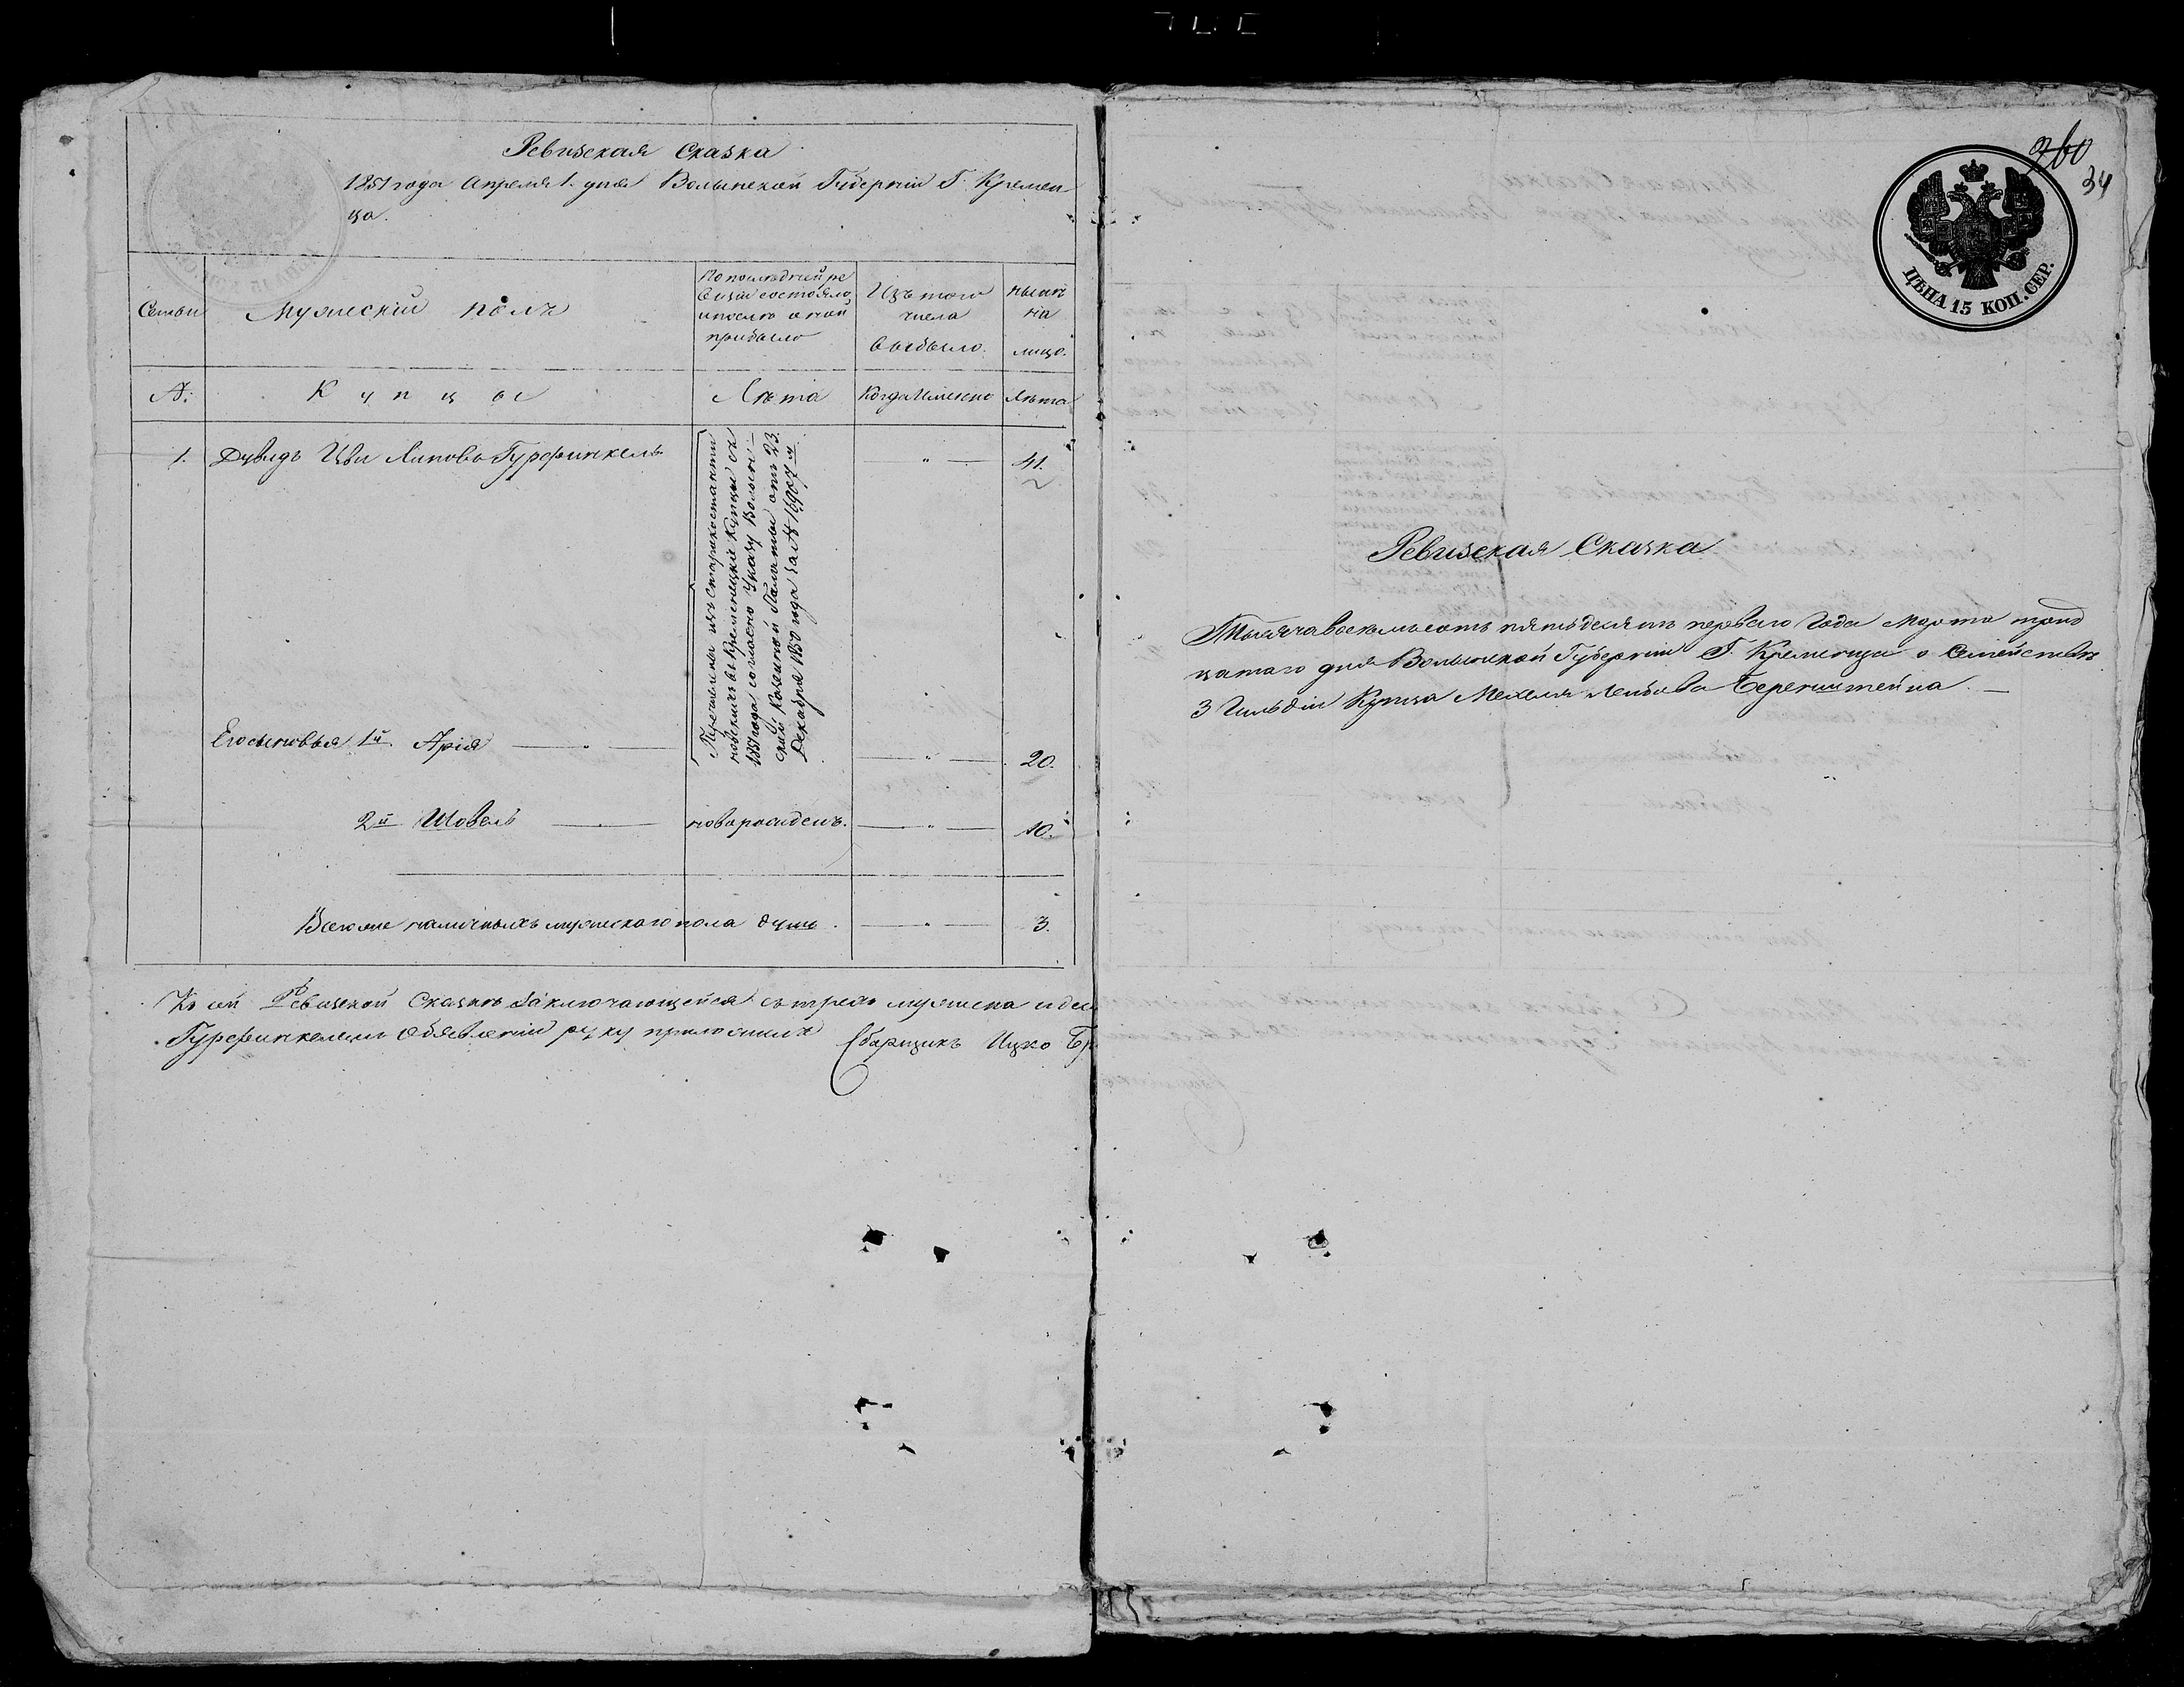 Ревизская Сказка
1851 года Апреля 1 дня Волынской Губернии Г. Кремен
ца.
Семьи
Мужескій полъ
По последней ре
визіи состояло
и после оной
прибыло
Изъ того
числа
выбыло.
ныне
на
лицо.
№:
Купцы
Лета
Когда Именно
Лета
1. Дувидъ Цви Липовъ Гурфинкель
41.
Перечислены изъ Староконстанти
новскихъ въ Кременецкіе Купцы съ
1851 года согласно Указу Волын
ской Казенной Палаты отъ 23.
Декабря 1850 года за № 16907 м
Его сыновья 1й Арія
20.
2й Шовель
новорожденъ.
10.
Всего же наличныхъ мужескаго пола душъ.
3.
Къ сей Ревизской Сказке заключающейся съ трехъ мужеска
Гурфинкелемъ Объявленіи руку приложилъ
Сборщикъ Ицко
260
34
ЦѢНА 15 КОП. СЕР.
Ревизская Сказка
Тысяча восемьсотъ пятьдесятъ перваго Года Марта трид
цатаго дня Волынской Губерніи Г. Кременца о Семействе
3 Гильдіи Купца Мехеля Лейбова Беренштейна.